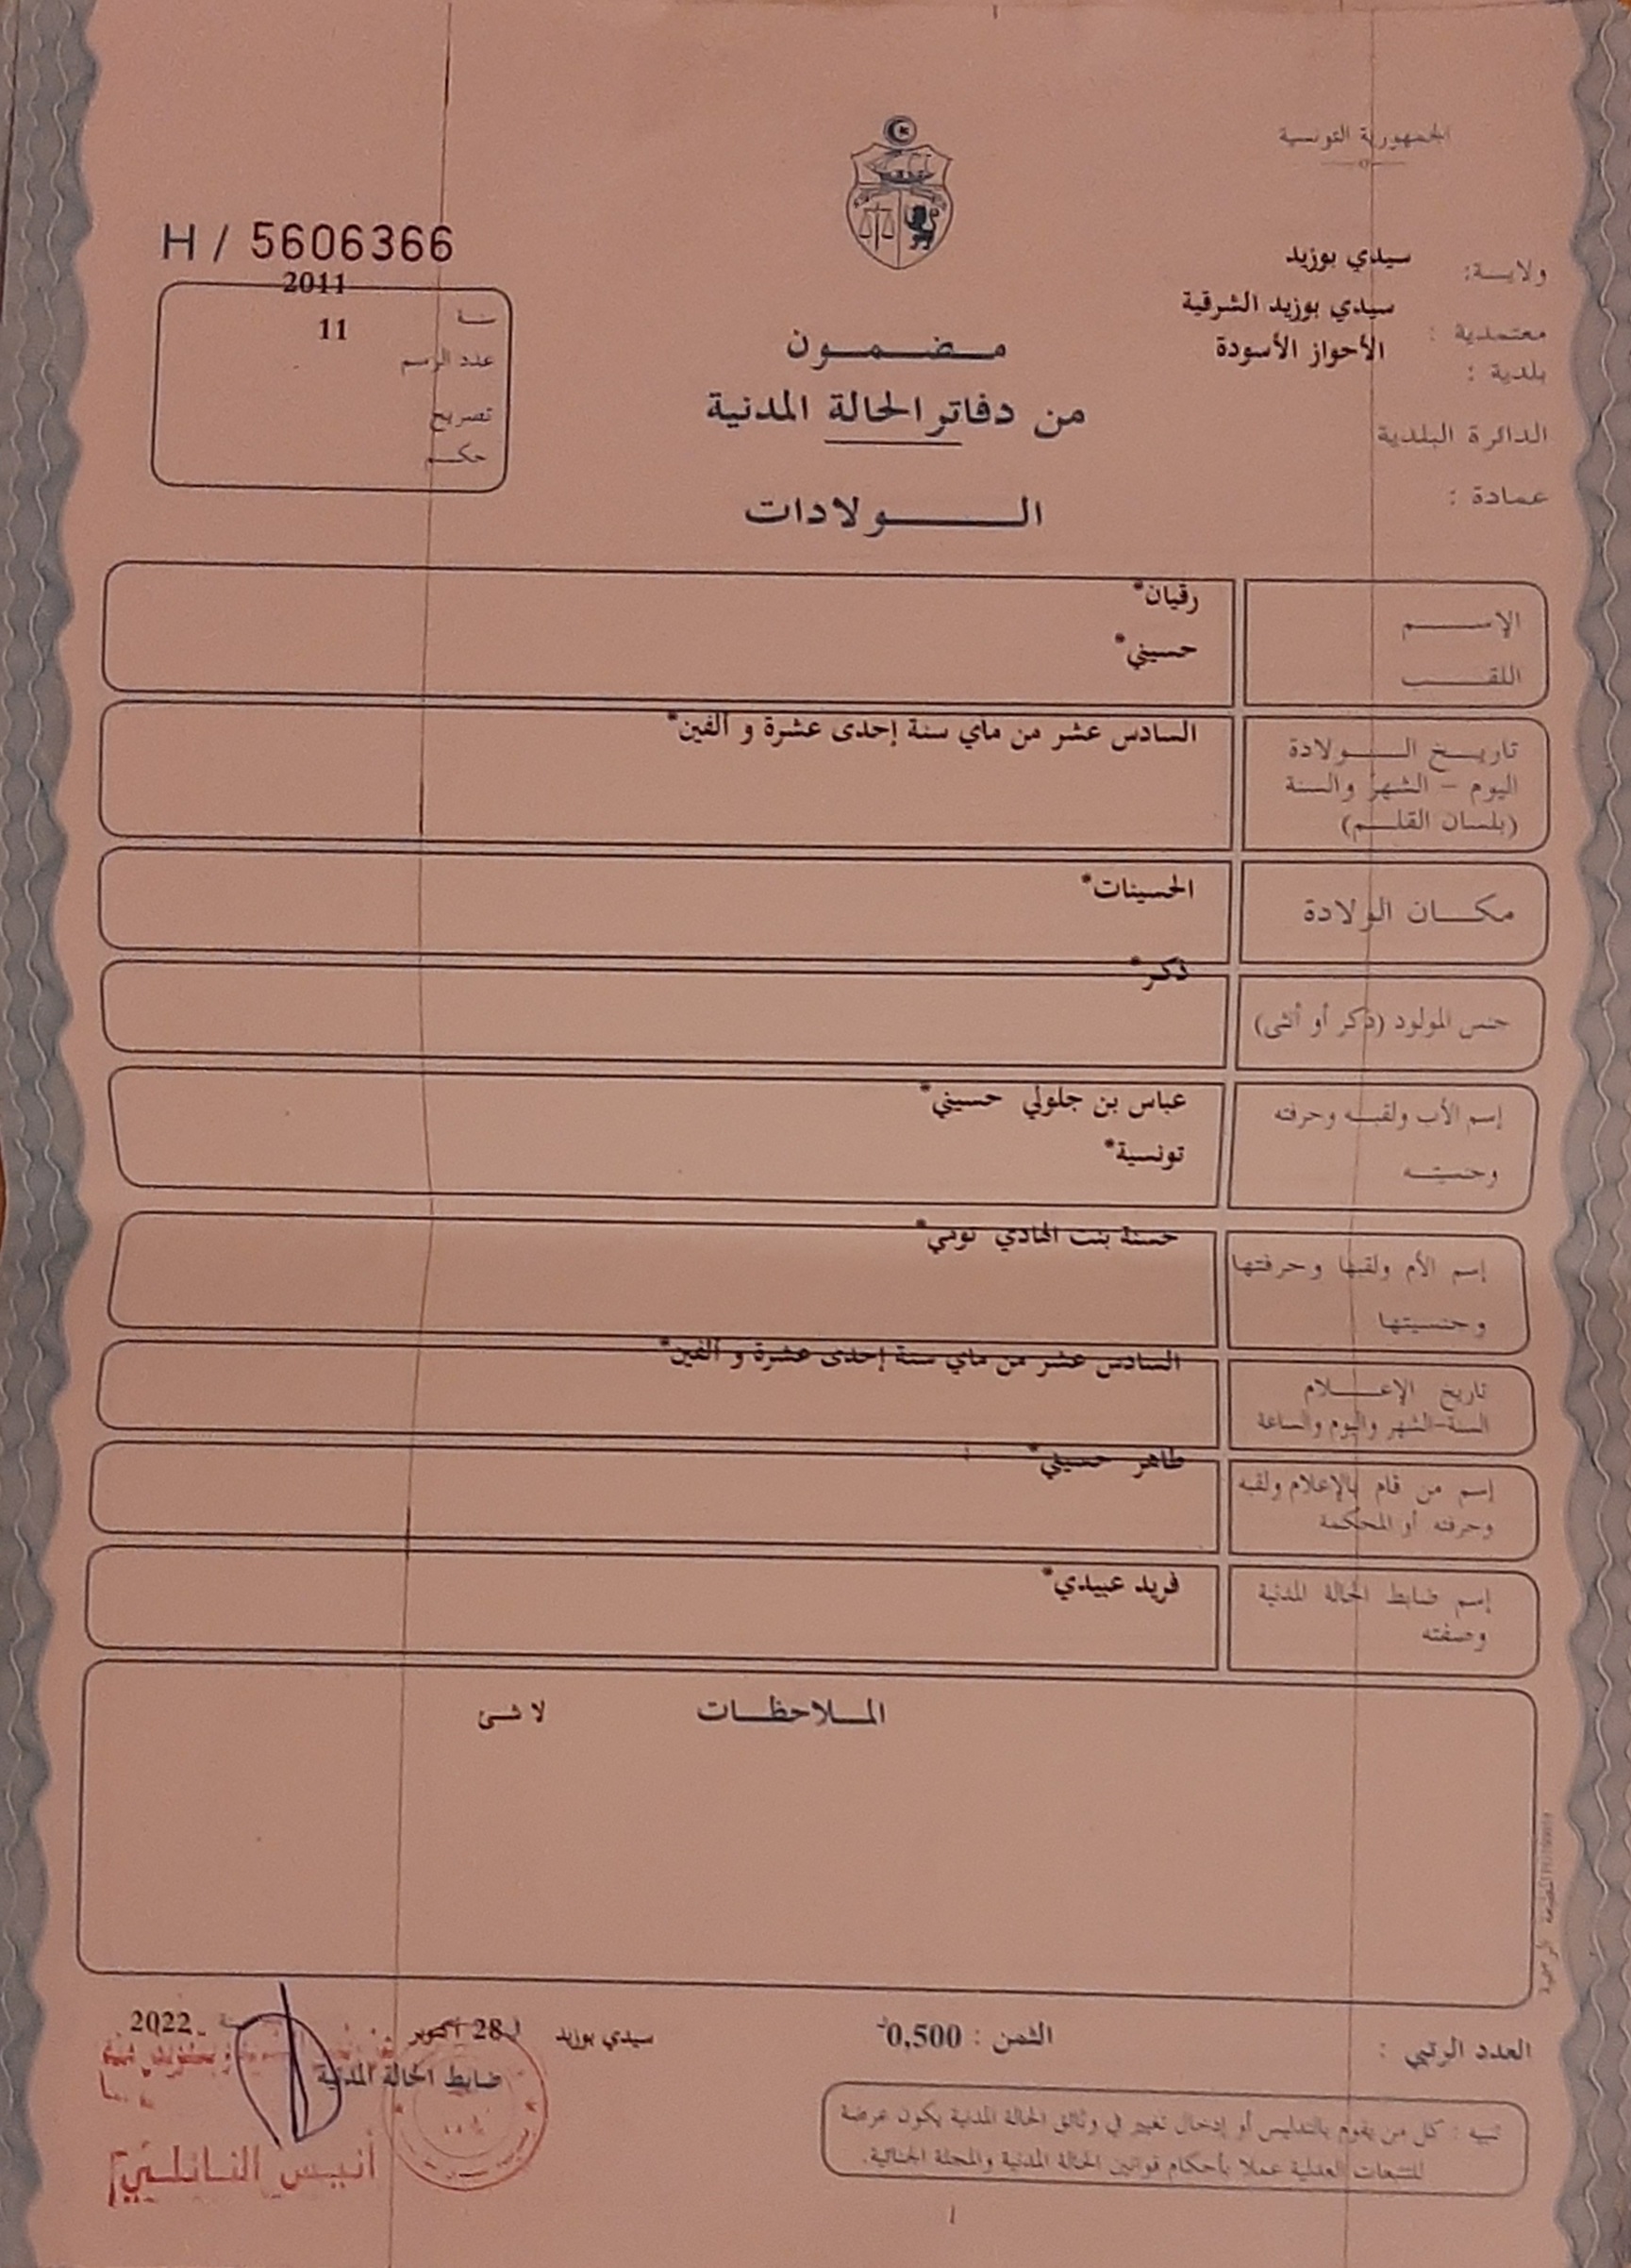 الجمهورية التونسية
ولايــة: سيدي بوزيد
معتمدية : سيدي بوزيد الشرقية
بلدية : الأحواز الأسودة
الدائرة البلدية
عمادة :
H / 5606366
سنة 2011
عدد الرسم 11
تصريح
حكم
مضمون
من دفاتر الحالة المدنية
الولادات
الإسم رقيان*
اللقب حسيني*
تاريخ الولادة السادس عشر من ماي سنة إحدى عشرة و ألفين*
اليوم - الشهر والسنة
(بلسان القلم)
مكان الولادة الحسينات*
جنس المولود (ذكر أو أنثى) ذكر*
إسم الأب ولقبه وحرفته عباس بن جلولي حسيني*
وجنسيته تونسية*
إسم الأم ولقبها وحرفتها حسنة بنت الهادي تومي*
وجنسيتها
تاريخ الإعلام السادس عشر من ماي سنة إحدى عشرة و ألفين*
السنة-الشهر واليوم والساعة
إسم من قام بالإعلام ولقبه طاهر حسيني*
وحرفته أو المحكمة
إسم ضابط الحالة المدنية فريد عبيدي*
وصفته
الملاحظات لا شئ
العدد الرتبي :
الثمن : 0,500د
سيدي بوزيد لـ 28 أكتوبر 2022
ضابط الحالة المدنية
أنيس النائلي
تنبيه : كل من يقوم بالتدليس أو إدخال تغيير في وثائق الحالة المدنية يكون عرضة
للتتبعات العدلية عملا بأحكام قوانين الحالة المدنية والمجلة الجنائية.
المطبعة الرسمية